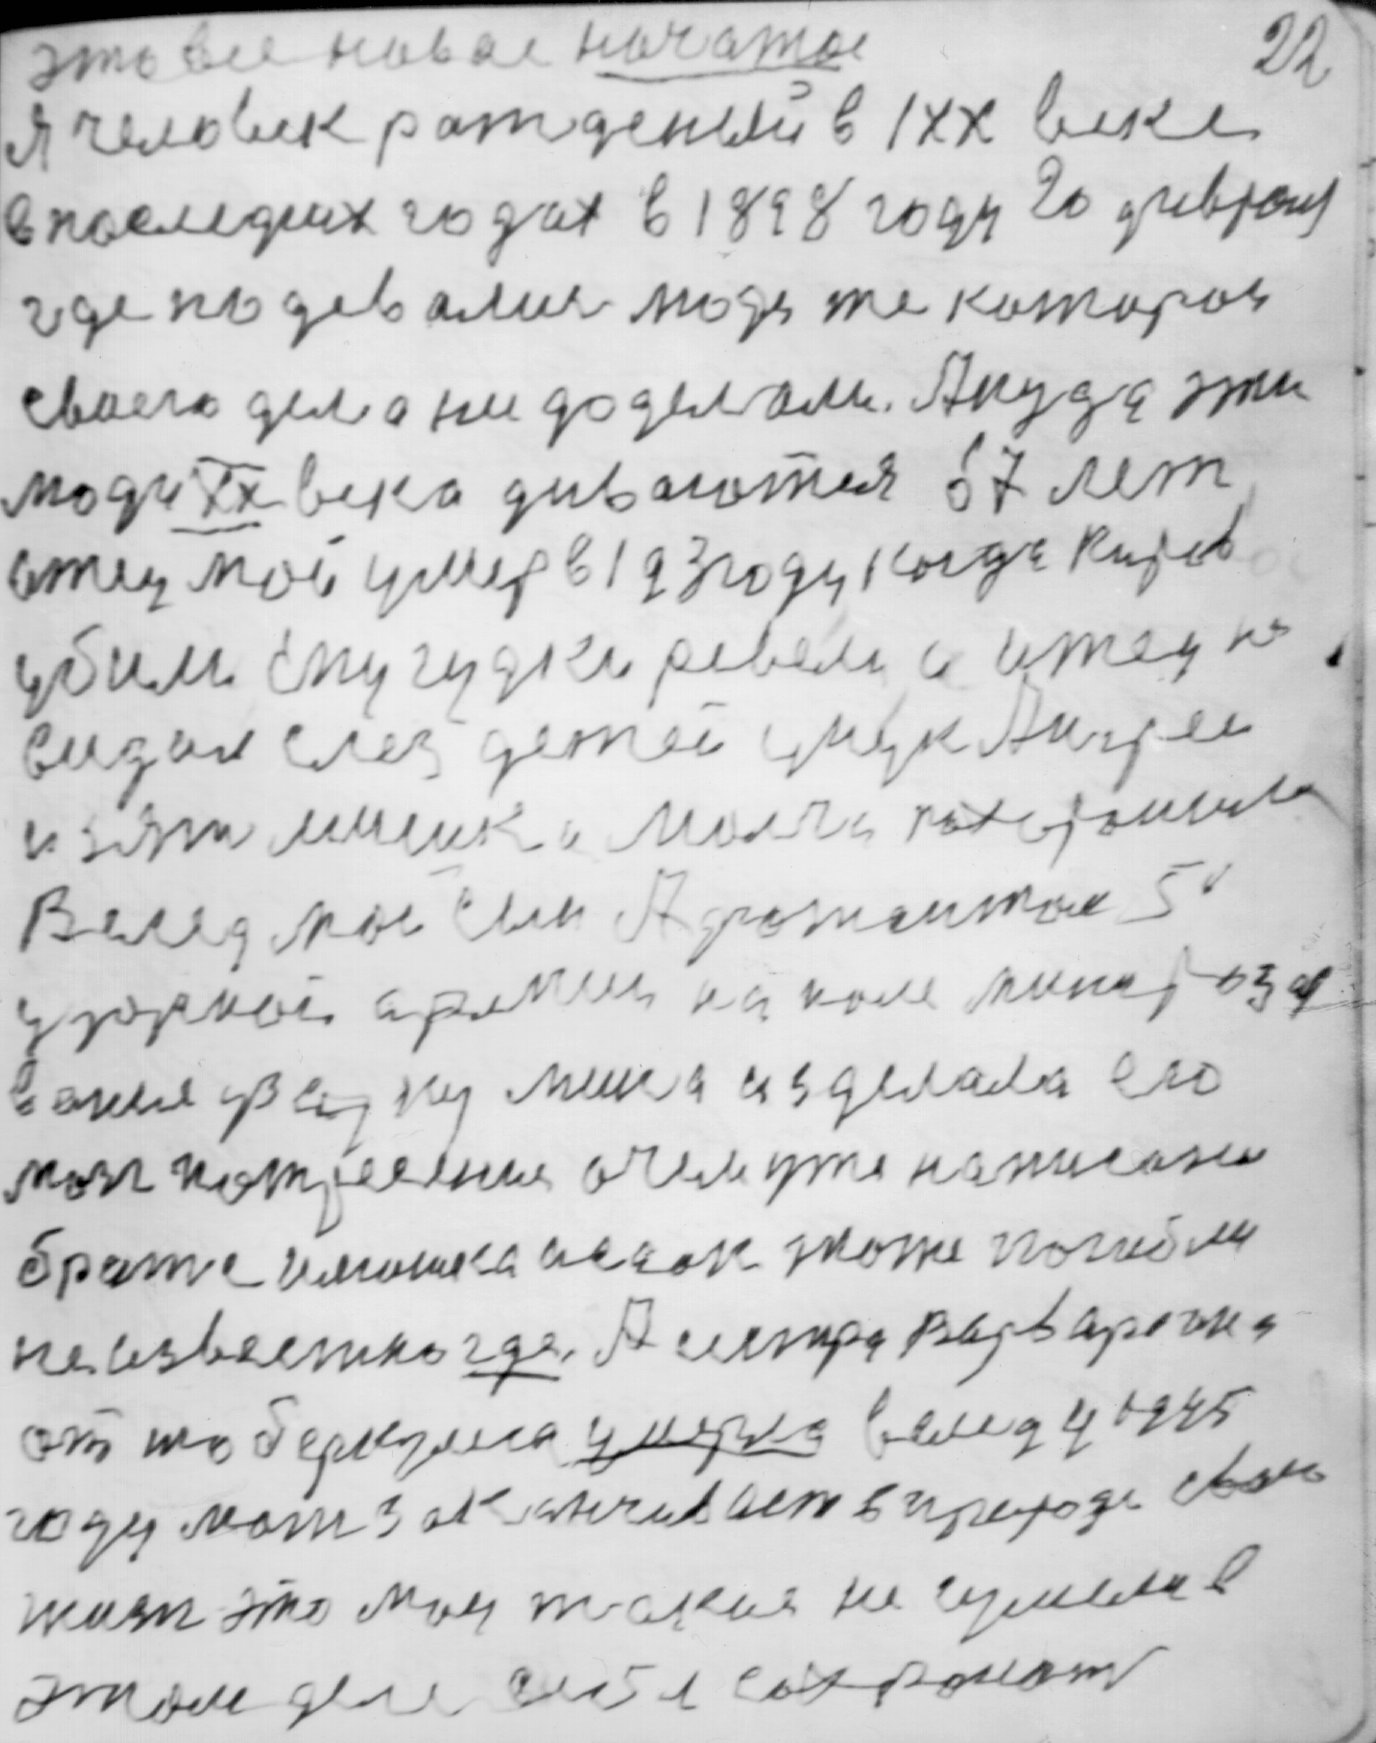 это все новое начатое 22
я человек ратденый в 1ХХ веке
в последних годах в 1898 году 20 февраля
где подевалися люди те которои
своего дела ни доделали. А куда эти
люди ХХ века диваются 67 лет
отец мой умер в 193 году когда Киров
убили ему гудки ревели а отец не
видал слез детей внук Андрее
и зят мишка молча похоронила
Вслед мой сын Адютантом 5й
ударной армии на поле минирозо
вание мина изделала его
мозг потресение о чем уже написано
братя илюшка исаак тоже погибли
не известно где. А сестра Варварочка
от тоберкулеса умерла вслед у 1945
году мат заканчивает в природе свою
жизн это моя такие не сумела в
этом деле себя сохронит